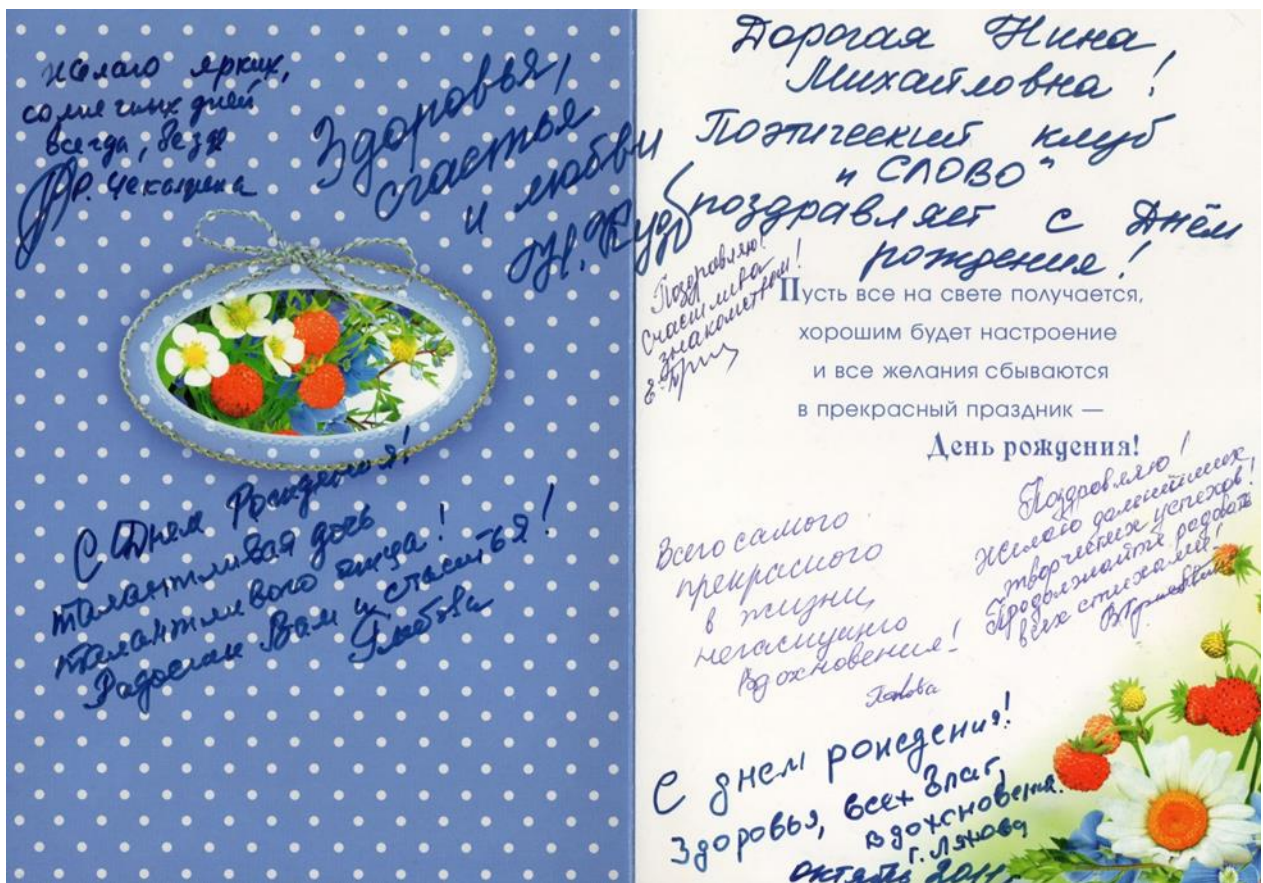 Желаю ярких,
солнечных дней
всегда, везде
Р. Чекалина
Здоровья,
счастья
и любви
Н.
С Днем Рождения!
талантливая дочь
талантливого отца!
Радости Вам и счастья!
Дорогая Нина,
Михайловна!
Поэтический клуб
„СЛОВО"
поздравляет с Днём
рождения!
Поздравляю!
Счастлива
знакомством!
Пусть все на свете получается,
хорошим будет настроение
и все желания сбываются
в прекрасный праздник —
День рождения!
Всего самого
прекрасного
в жизни,
негасимого
вдохновения!
Поздравляю!
Желаю дальнейших
творческих успехов!
Продолжайте радовать
всех стихами!
С днем рождения!
Здоровья, всех благ,
вдохновения.
Г. Ляхова
октябрь 2011г